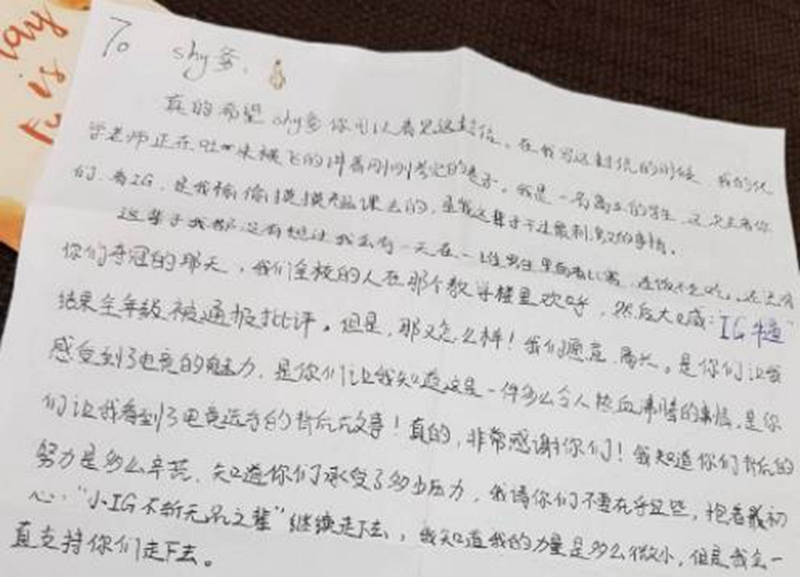 ay
is
To shy爹,
真的希望shy爹你可以看见这封信。在我写这封信的时候 我的化
学老师正在吐沫横飞的讲着刚刚考完的卷子。我是一名高三的学生,这次去看你
们,看IG,是我偷偷摸摸翘课去的,是我这辈子干过最刺激的事情。
这辈子我都没有想过我会有一天在一堆男生里面看比赛,连饭不吃。
你们夺冠的那天,我们全校的人在那个教学楼里欢呼,然后大喊:"IG牛逼"
结果全年级被通报批评。但是,那又怎么样!我们愿意,局长。是你们让我
感受到了电竞的魅力,是你们让我知道这是一件多么令人热血沸腾的事情,是你
们让我看到了电竞选手的背后故事!真的,非常感谢你们!我知道你们背后的
努力是多么辛苦,知道你们承受了多少压力,我请你们不要在乎这些,抱着最初
心,"小IG不斩无名之辈"继续走下去,我知道我的力量是多么微小,但是我会一
直支持你们走下去。